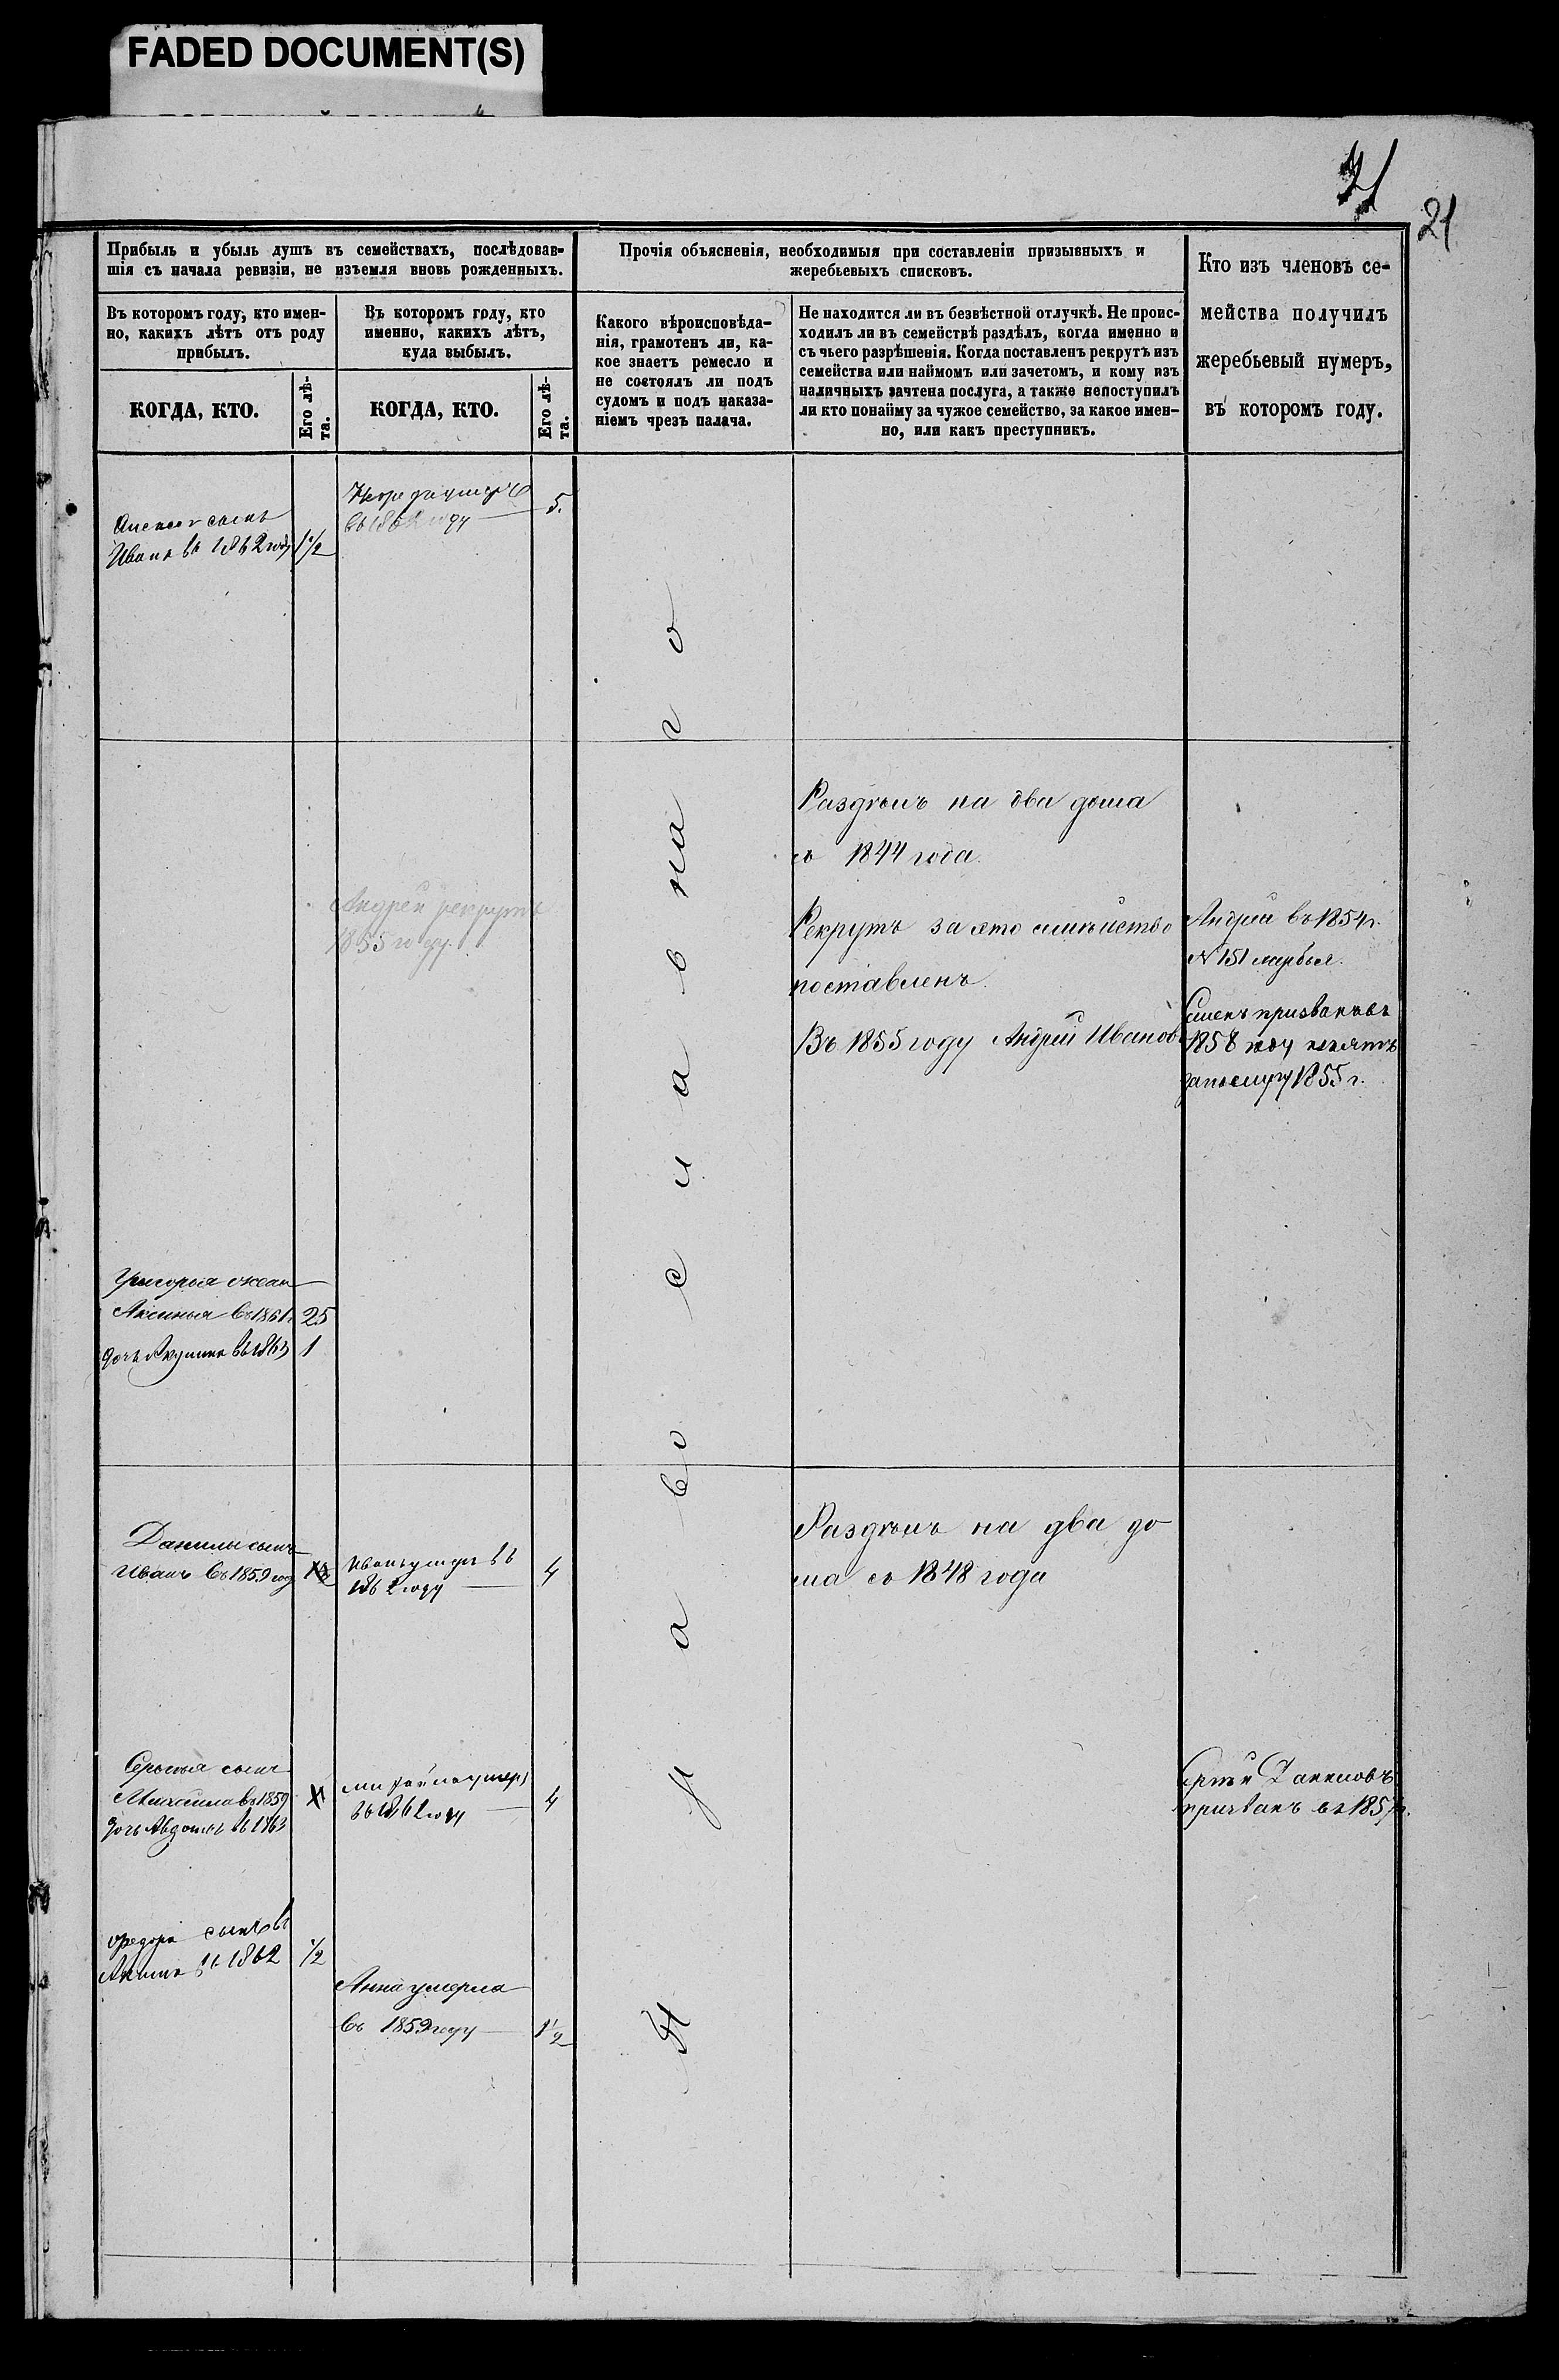 FADED DOCUMENT(S)
21
21
Прибыль и убыль душъ въ семействахъ, послѣдовав-
шія съ начала ревизіи, не изъемля вновь рожденныхъ.
Въ которомъ году, кто имен-
но, какихъ лѣтъ отъ роду
прибылъ.
КОГДА, КТО.
Его лѣ-
та.
Въ которомъ году, кто
именно, какихъ лѣтъ,
куда выбылъ.
КОГДА, КТО.
Его лѣ-
та.
Прочія объясненія, необходимыя при составленіи призывныхъ и
жеребьевыхъ списковъ.
Какого вѣроисповѣда-
нія, грамотенъ ли, ка-
кое знаетъ ремесло и
не состоялъ ли подъ
судомъ и подъ наказа-
ніемъ чрезъ палача.
Не находится ли въ безвѣстной отлучкѣ. Не проис-
ходилъ ли въ семействѣ раздѣлъ, когда именно и
съ чьего разрѣшенія. Когда поставленъ рекрутъ изъ
семейства или наймомъ или зачетомъ, и кому изъ
наличныхъ зачтена послуга, а также непоступилъ
ли кто понайму за чужое семейство, за какое имен-
но, или какъ преступникъ.
Кто изъ членовъ се-
мейства получилъ
жеребьевый нумеръ,
въ которомъ году.
сынъ
Иванъ въ 1862 году 1 1/2
5.
Православнаго
Раздѣлъ на два дома
съ 1844 года.
Андрей рекрутъ
1855 году.
Рекрутъ за это семѣйство
поставленъ.
Въ 1855 году Андрей Ивановъ
Андрей въ 1854 г.
№ 151 жребья.
призванъ въ
1858 году
за послугу 1855 г.
Григорья жена
Аксинья въ 1861 г. 25
дочь Акулина въ 1863 1
Данилы сынъ
Иванъ въ 1859 году
Иванъ умеръ въ
1862 году 4
Раздѣлъ на два до
ма съ 1848 года
Сергѣя сынъ
Михайла въ 1859
дочь Авдотья въ 1863
Михайла умеръ
въ 1862 году 4
Сергѣй Даниловъ
призванъ въ 1857 г.
Федора сынъ
въ 1862 1/2
Анна умерла
въ 1859 году 1 1/2